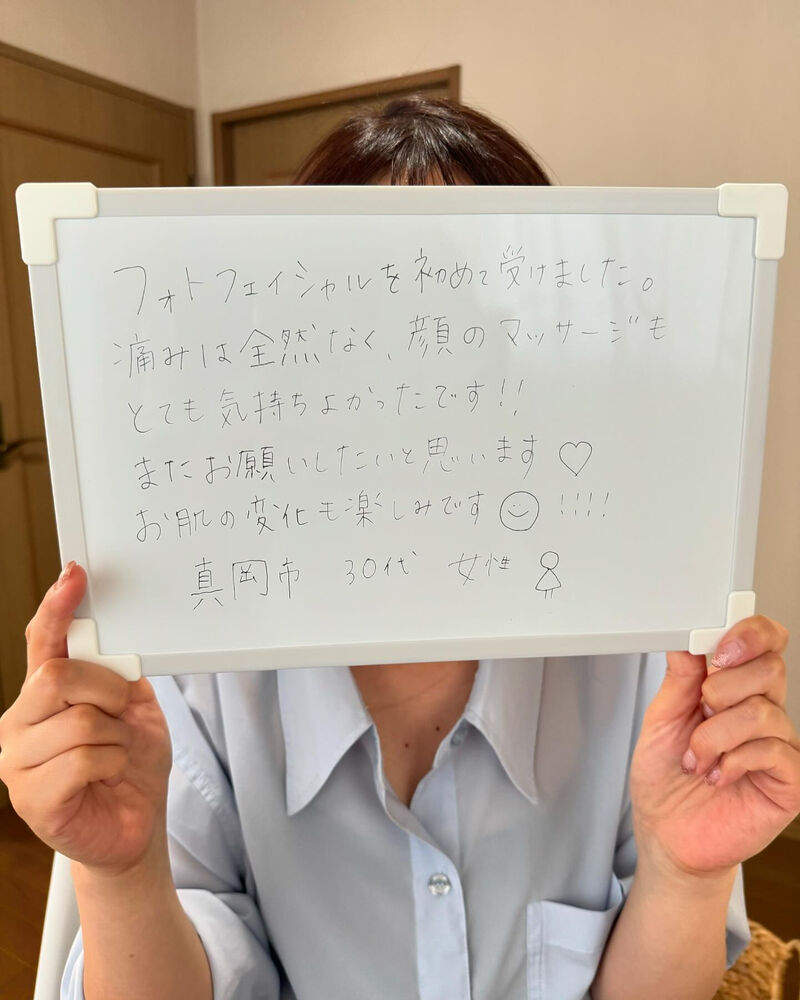 フォトフェイシャルを初めて受けました。
痛みは全然なく、顔のマッサージも
とても気持ちよかったです!!
またお願いしたいと思います♡
お肌の変化も楽しみです☺!!!!
真岡市 30代 女性